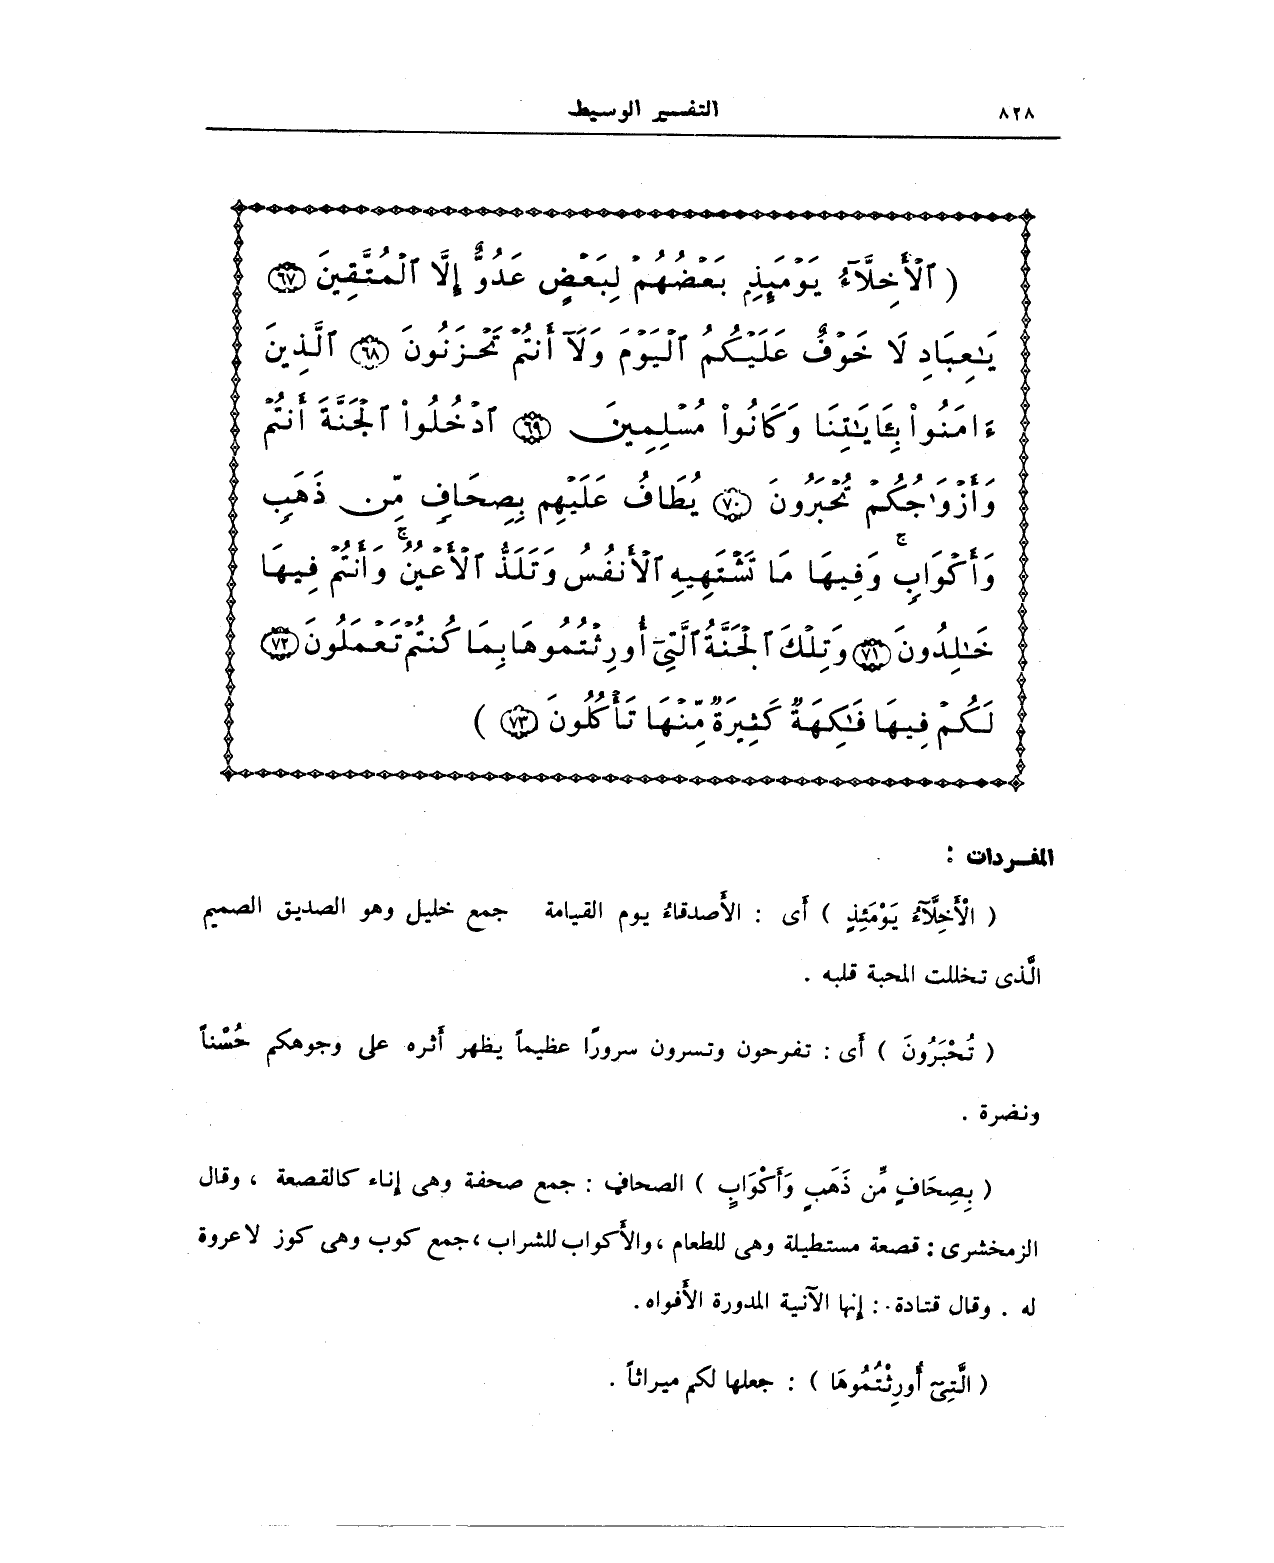 ٨٢٨
التفسير الوسيط
( ٱلْأَخِلَّآءُ يَوْمَئِذِۭ بَعْضُهُمْ لِبَعْضٍ عَدُوٌّ إِلَّا ٱلْمُتَّقِينَ ٦٧
يَـٰعِبَادِ لَا خَوْفٌ عَلَيْكُمُ ٱلْيَوْمَ وَلَآ أَنتُمْ تَحْزَنُونَ ٦٨ ٱلَّذِينَ
ءَامَنُوا۟ بِـَٔايَـٰتِنَا وَكَانُوا۟ مُسْلِمِينَ ٦٩ ٱدْخُلُوا۟ ٱلْجَنَّةَ أَنتُمْ
وَأَزْوَٰجُكُمْ تُحْبَرُونَ ٧٠ يُطَافُ عَلَيْهِم بِصِحَافٍ مِّن ذَهَبٍ
وَأَكْوَابٍ ۚ وَفِيهَا مَا تَشْتَهِيهِ ٱلْأَنفُسُ وَتَلَذُّ ٱلْأَعْيُنُ ۖ وَأَنتُمْ فِيهَا
خَـٰلِدُونَ ٧١ وَتِلْكَ ٱلْجَنَّةُ ٱلَّتِىٓ أُورِثْتُمُوهَا بِمَا كُنتُمْ تَعْمَلُونَ ٧٢
لَكُمْ فِيهَا فَـٰكِهَةٌ كَثِيرَةٌ مِّنْهَا تَأْكُلُونَ ٧٣ )
المفـردات :
( الْأَخِلَّآءُ يَوْمَئِذٍ ) أَى : الأَصدقاءُ يوم القيامة جمع خليل وهو الصديق الصميم
الَّذى تخللت المحبة قلبه .
( تُحْبَرُونَ ) أَى : تفرحون وتسرون سرورًا عظيماً يظهر أَثره على وجوهكم حُسْناً
ونضرة .
( بِصِحَافٍ مِّن ذَهَبٍ وَأَكْوَابٍ ) الصحاف : جمع صحفة وهى إناء كالقصعة ، وقال
الزمخشرى : قصعة مستطيلة وهى للطعام ، والأَكواب للشراب ، جمع كوب وهى كوز لا عروة
له . وقال قتادة : إنها الآنية المدورة الأَفواه .
( الَّتِىٓ أُورِثْتُمُوهَا ) : جعلها لكم ميراثاً .